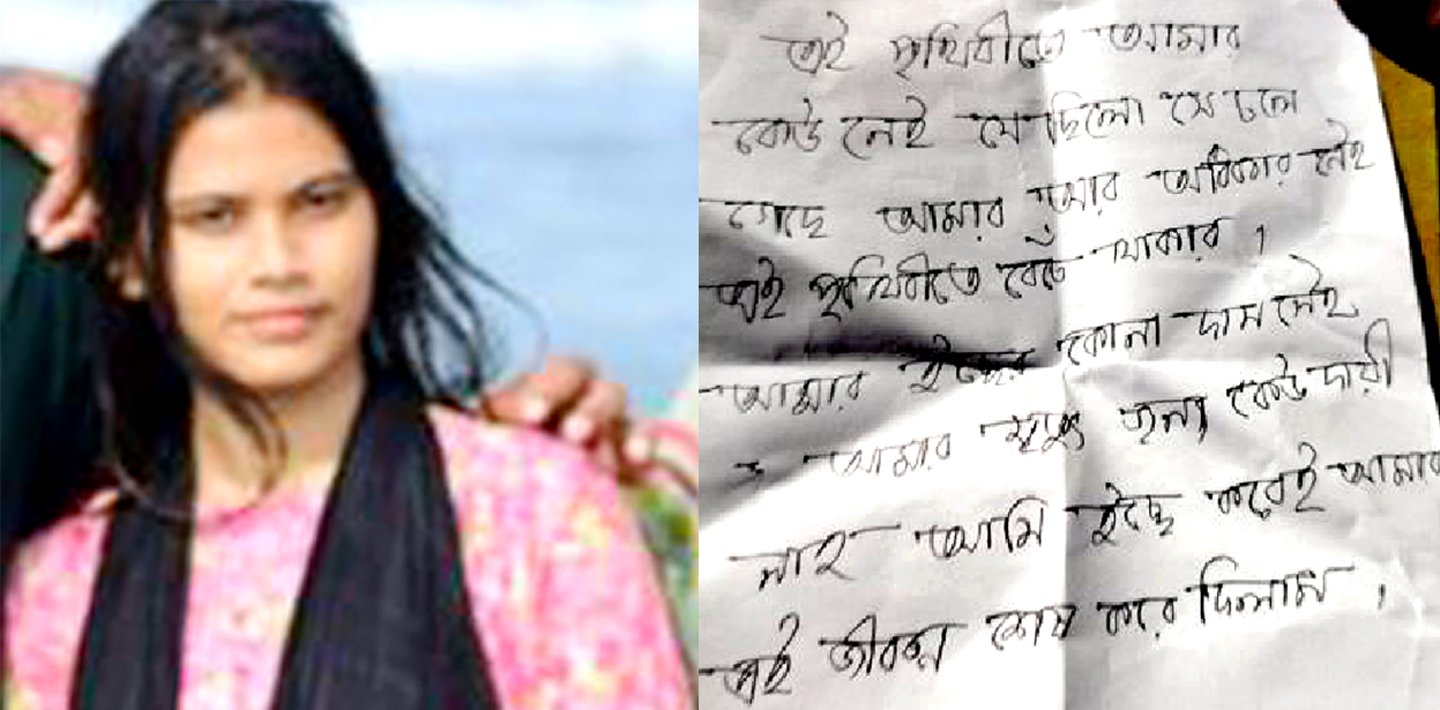 এই পৃথিবীতে আমার
কেউ নেই যে ছিলো সে চলে
গেছে আমার আর অধিকার নেই
এই পৃথিবীতে বেঁচে থাকার ।
আমার দাম নেই
আমার জন্য কেউ দায়ী
নাই আমি ইচ্ছে করেই আমার
এই জীবন শেষ করে দিলাম ।